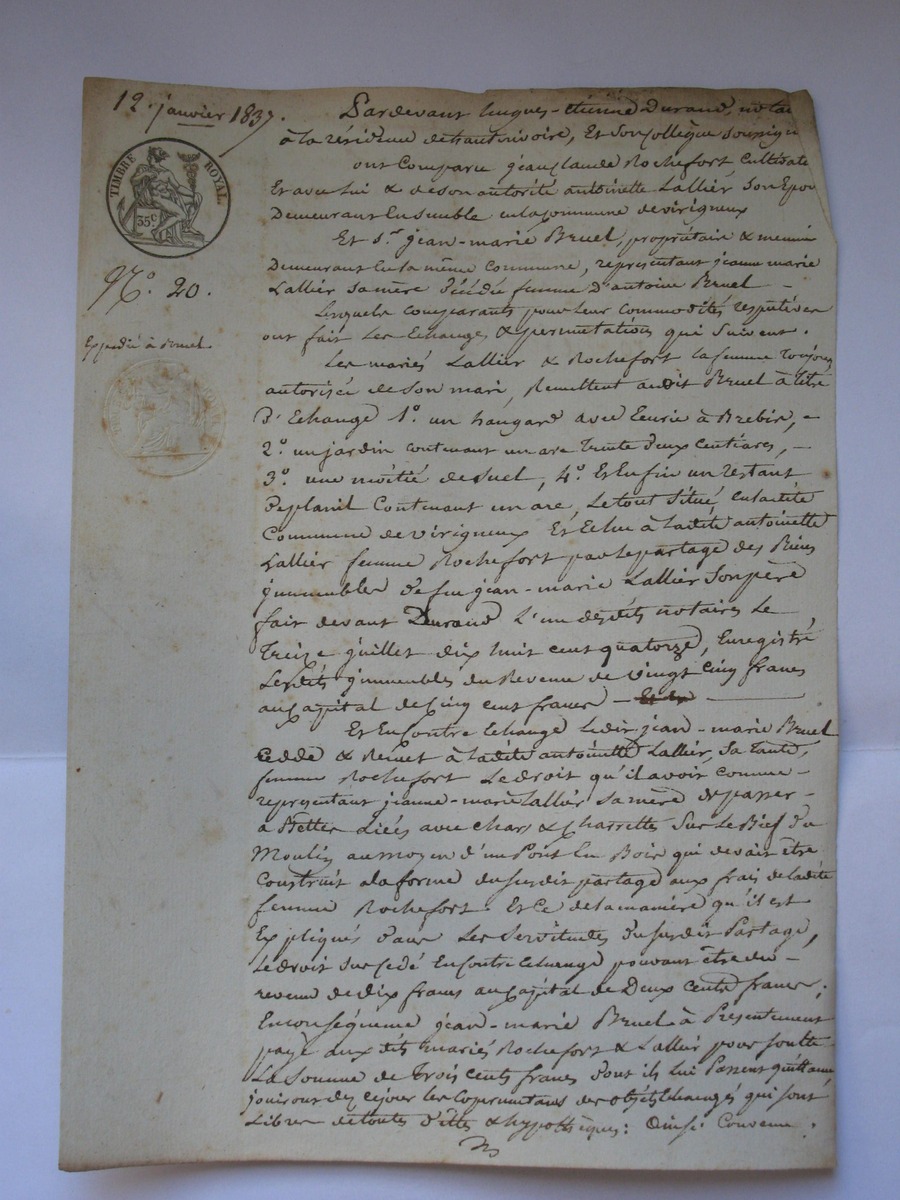 12. janvier 1837.
TIMBRE ROYAL
35c
No. 20.
Expédié à Bruel.
Pardevant hugues-étienne Durand, notai
à la résidence de hautrivoire, Et son collègue soussign
ont Comparu jean claude Rochefort Cultivate
Et avec lui & de son autorité antoinette Lallier son Epou
Demeurant Ensemble en la commune de virigneux
Et Sr jean-marie Bruel, propriétaire &
Demeurant En la même Commune, représentant jeanne marie
Lallier sa mère décédée femme d'antoine Bruel -
Lesquels comparants pour leur commodités respectives
ont fait les Echanges & permutations qui suivent.
Les mariés Lallier & Rochefort la femme toujours
autorisée de son mari, Remettent audit Bruel à titre
D'Echange 1o. un hangard avec Ecurie à Brebis, -
2o. un jardin contenant un are trente deux centiares, -
3o. une moitié de suel, 4o. Et Enfin un restant
De planil Contenant un are, Le tout situé, en ladite
Commune de virigneux Et Echu à ladite antoinette
Lallier femme Rochefort par le partage des Biens
jmmeubles de feu jean-marie Lallier son père
fait devant Durand L'un desdits notaires Le
Treize juillet dix huit cent quatorze, Enregistré
Lesdits jmmeubles du Revenu de vingt cinq francs
au capital de Cinq cent francs -
Et En Contre Echange Ledit jean-marie Bruel
Cedde & Remet à ladite antoinette Lallier, sa tante,
femme Rochefort Le droit qu'il avoit comme -
représentant jeanne-marie Lallier sa mère de passer -
à Bettes Liées avec chars & Charrettes Sur Le Bief du
Moulin au moyen d'un Pont En Bois qui devait être
Construit à la forme du susdit partage aux frais de ladite
femme Rochefort. Et Ce de la manière qu'il est
Expliqués dans Les Servitudes du susdit Partage,
Le droit sus cedé En Contre échange pouvant être du -
revenu de dix francs au capital de Deux cents francs;
En conséquence jean-marie Bruel à Présentement
payé aux dits mariés Rochefort & Lallier pour soulte
La Somme de Trois Cents francs dont ils Lui Passent quittance
jouiront dès ce jour les Copermutans des objets Echangés qui sont
Libres de toutes dettes & hypothèques: Ainsi Convenu.